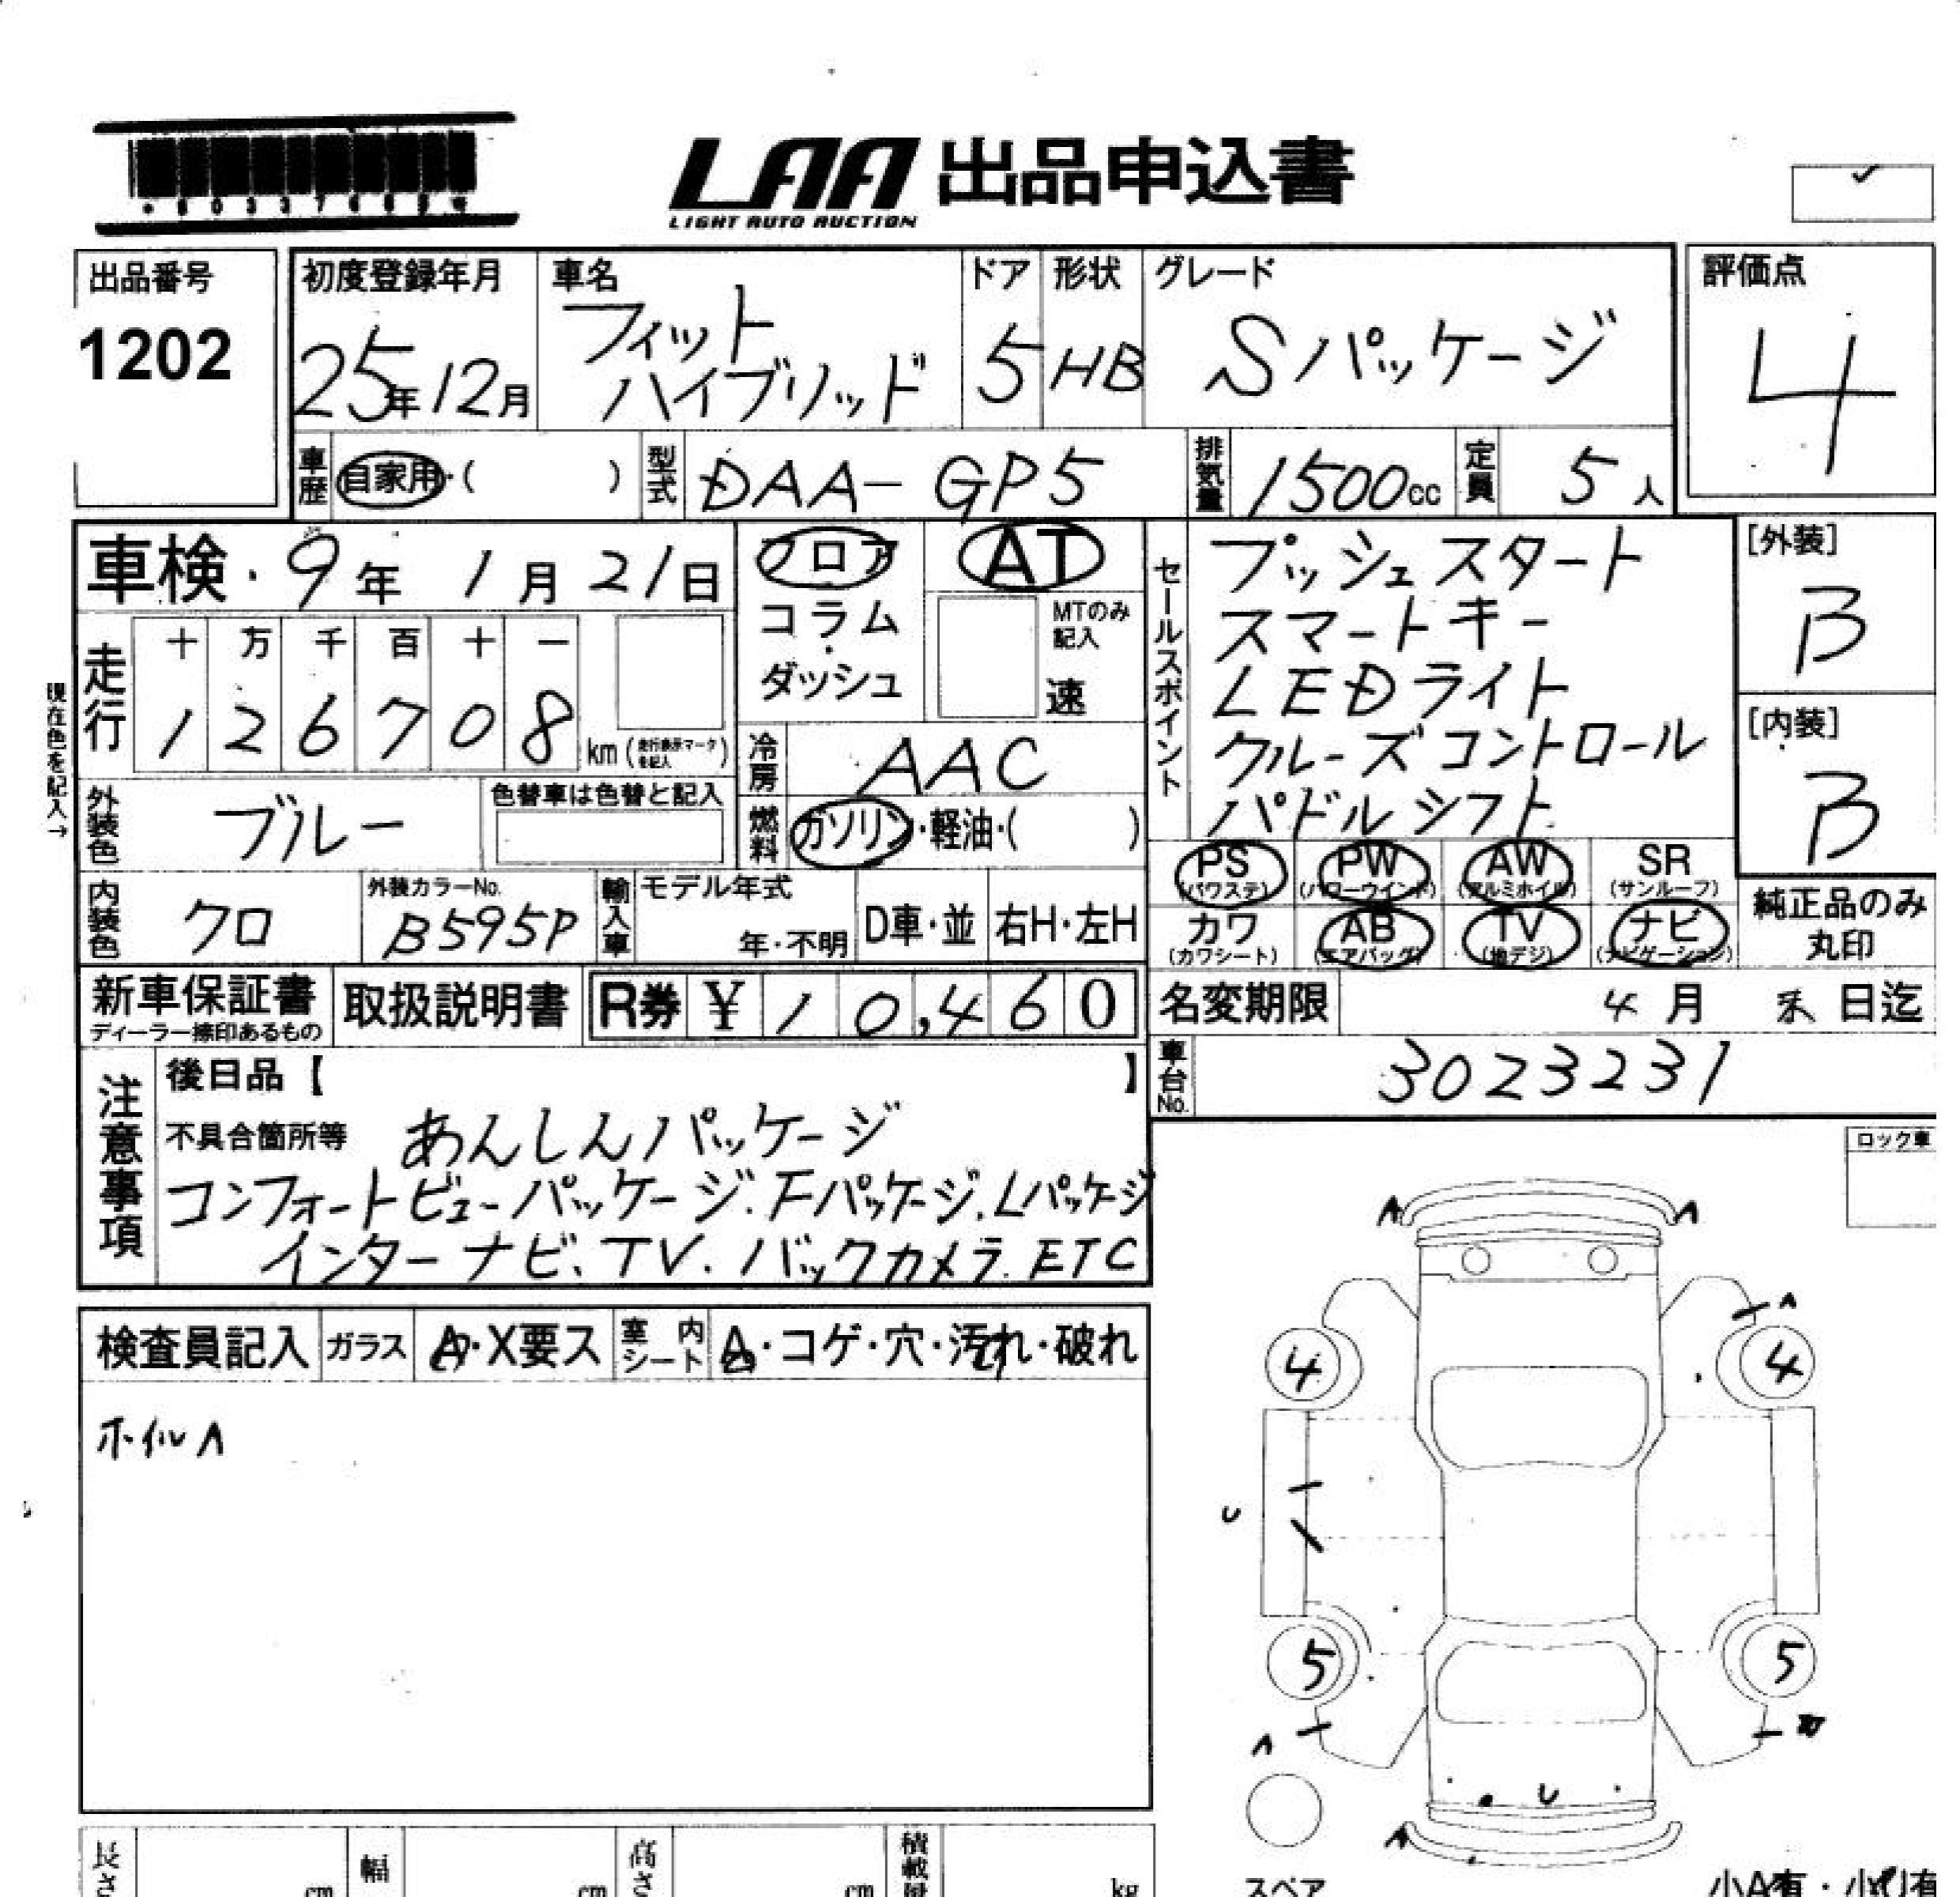 LAA 出品申込書
LIGHT AUTO AUCTION
出品番号
1202
初度登録年月
25年12月
車名
フィット
ハイブリッド
ドア
5
形状
HB
グレード
Sパッケージ
評価点
4
車歴 自家用・( )
型式 DAA-GP5
排気量 1500cc
定員 5人
車検 9年1月21日
フロア
コラム
ダッシュ
AT
MTのみ
記入
速
セールスポイント
プッシュスタート
スマートキー
LEDライト
クルーズコントロール
パドルシフト
[外装]
B
[内装]
B
現在色を記入→
走行
十 万 千 百 十 一
1 2 6 7 0 8 km (走行表示マークを記入)
冷房 AAC
外装色 ブルー
色替車は色替と記入
燃料 ガソリン・軽油・( )
PS (パワステ)
PW (パワーウインド)
AW (アルミホイル)
SR (サンルーフ)
カワ (カワシート)
AB (エアバッグ)
TV (地デジ)
ナビ (ナビゲーション)
純正品のみ
丸印
内装色 クロ
外装カラーNo.
B595P
輸入車
モデル年式
年・不明
D車・並
右H・左H
新車保証書
ディーラー捺印あるもの
取扱説明書
R券 ¥10,460
名変期限 4月末日迄
車台No. 3023231
注意事項
後日品【 】
不具合箇所等 あんしんパッケージ
コンフォートビューパッケージ.Fパッケージ.Lパッケージ
インターナビ、TV.バックカメラ.ETC
ロック車
検査員記入
ガラス A・X要ス
室内シート A・コゲ・穴・汚れ・破れ
ホイルA
A A
A
4 4
U
5 5
A
U
A
スペア
長さ cm
幅 cm
高さ cm
積載量 kg